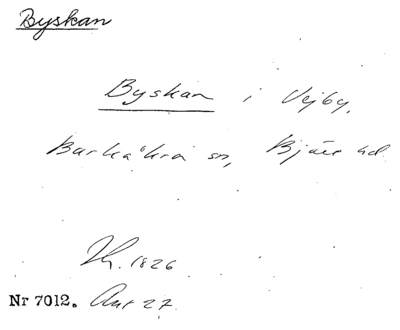 Byskan
Byskan i Vejby,
Barkåkra sn, Bjäre hd
1826
Nr 7012. Ant 27